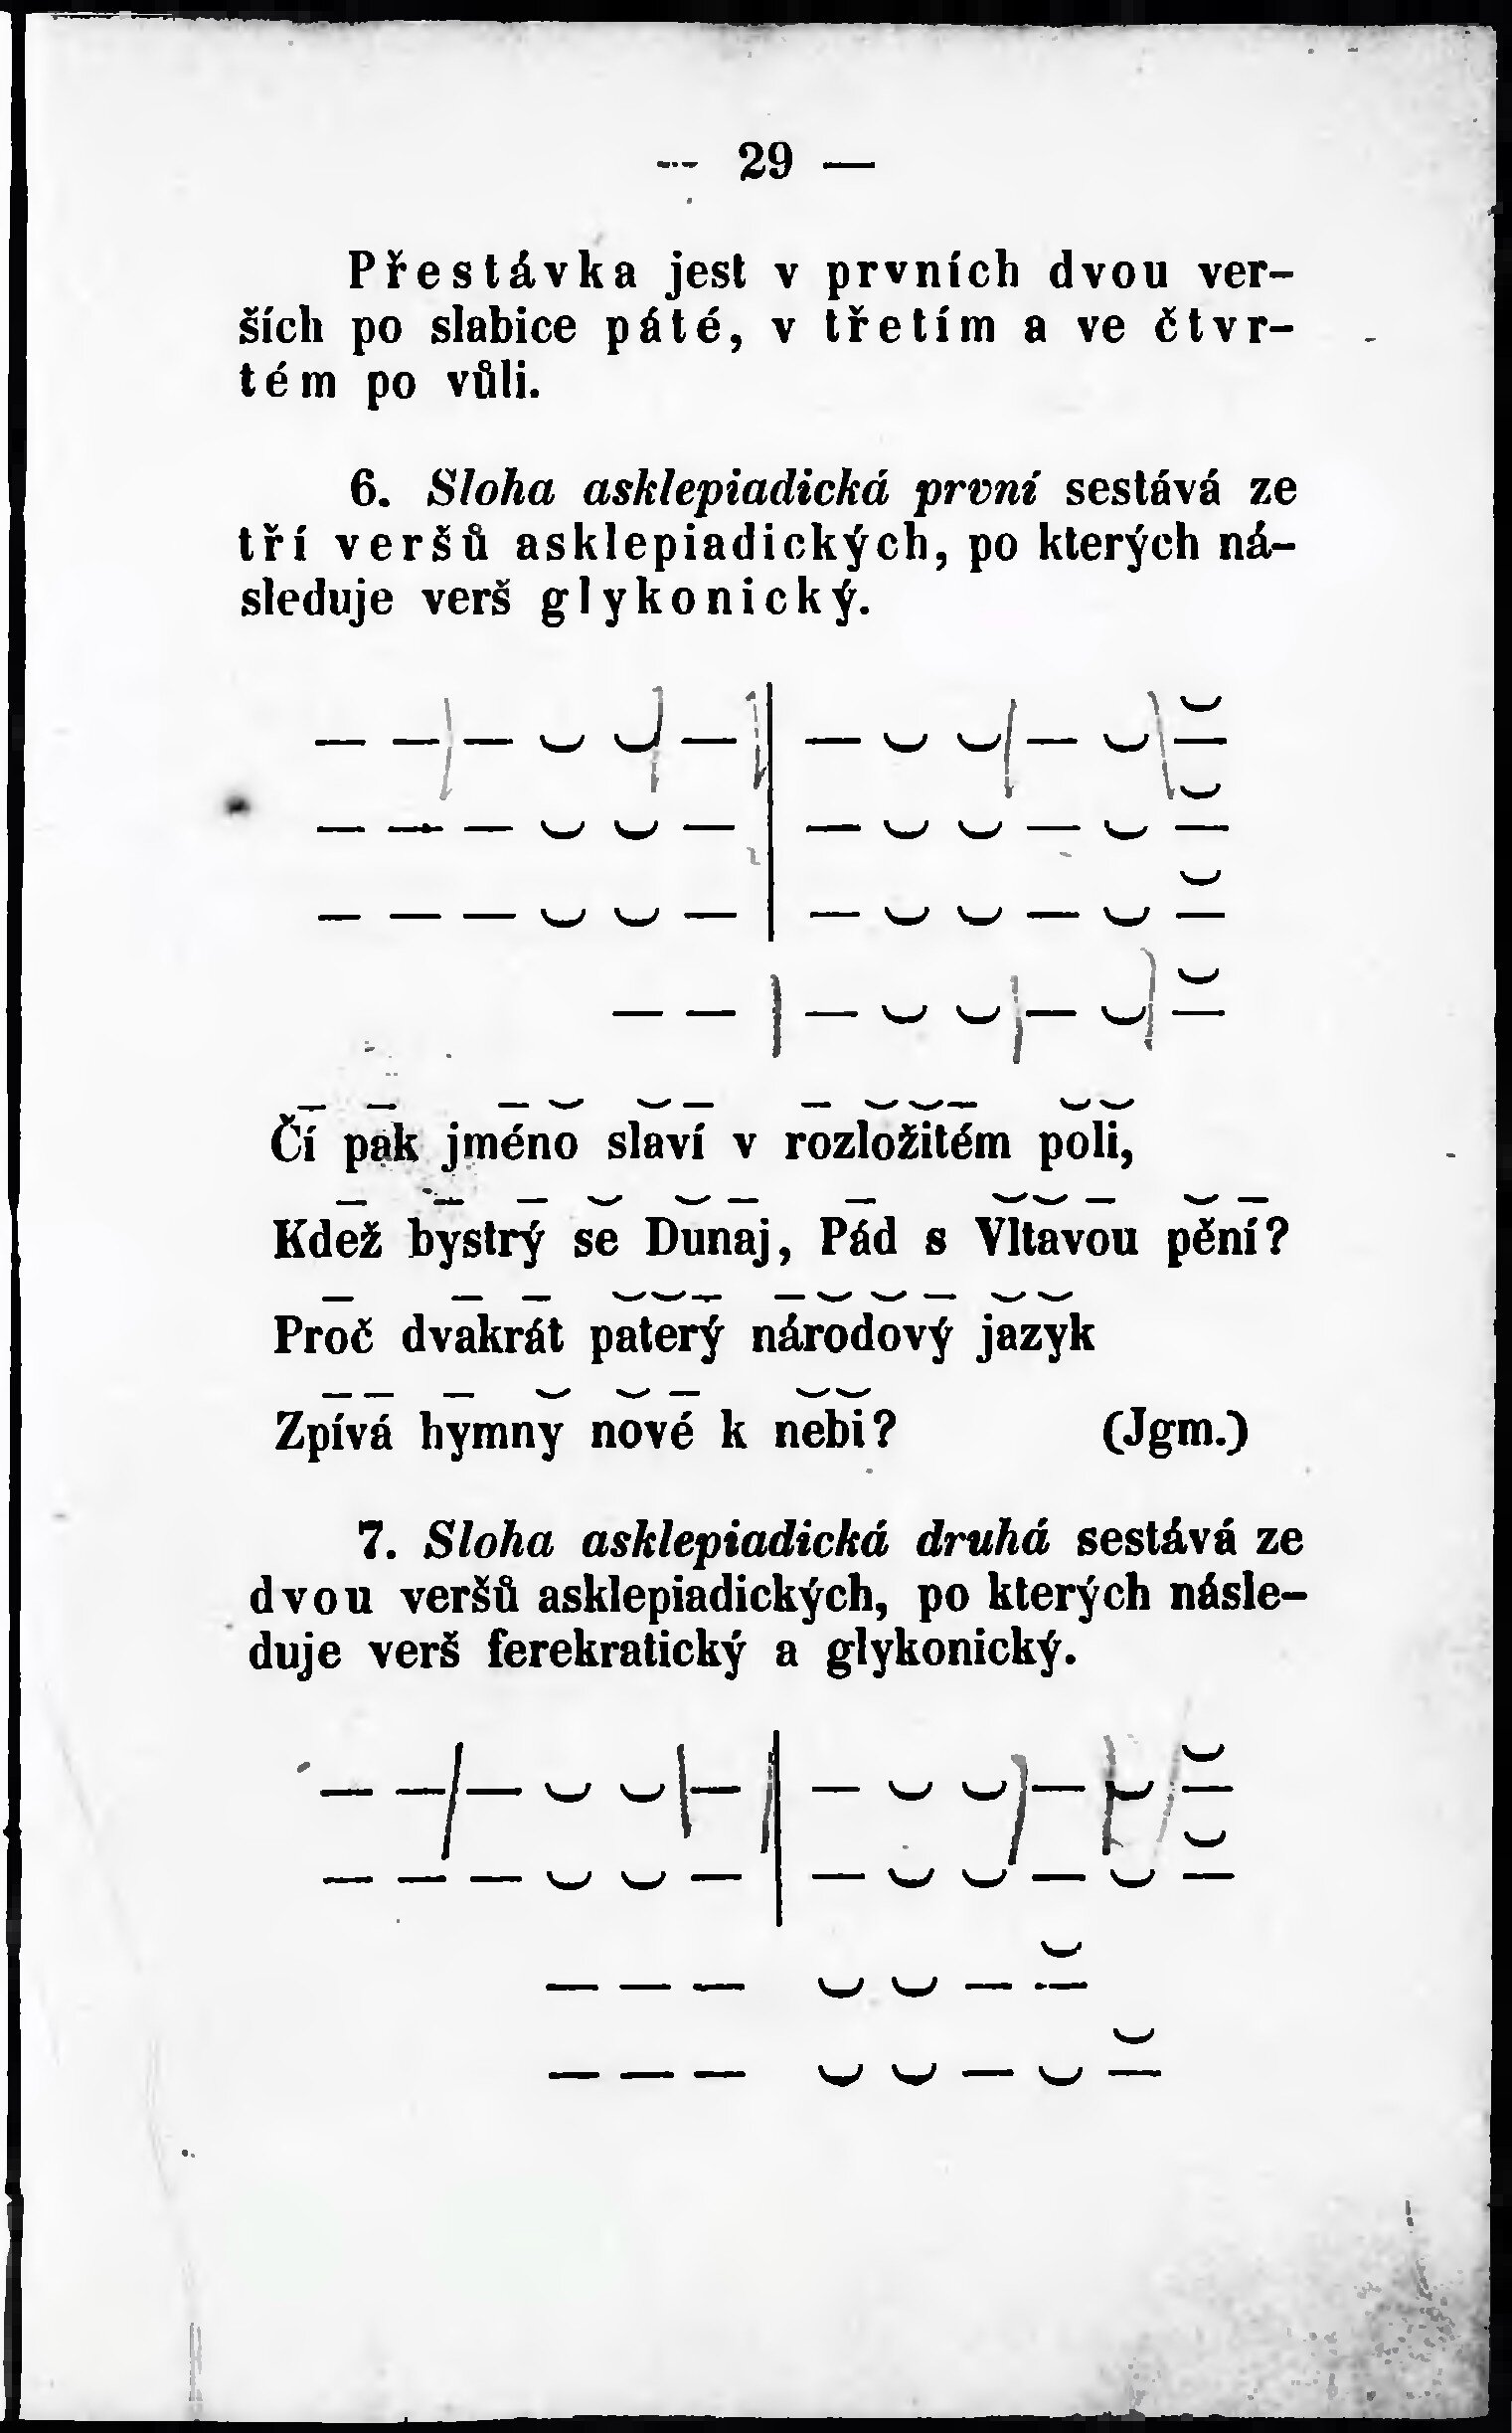 — 29 —
Přestávka jest v prvních dvou ver-
ších po slabice páté, v třetím a ve čtvr-
tém po vůli.
6. Sloha asklepiadická první sestává ze
tří veršů asklepiadických, po kterých ná-
sleduje verš glykonický.
— — — ⏑ ⏑ — | — ⏑ ⏑ — ⏑ ⏓
— — — ⏑ ⏑ — | — ⏑ ⏑ — ⏑ ⏓
— — — ⏑ ⏑ — | — ⏑ ⏑ — ⏑ ⏓
— — — ⏑ ⏑ — ⏑ ⏓
— — — ⏑ ⏑ — — ⏑ ⏑ — ⏑ ⏑
Čí pak jméno slaví v rozložitém poli,
— — — ⏑ ⏑ — — ⏑ ⏑ — ⏑ —
Kdež bystrý se Dunaj, Pád s Vltavou pění?
— — — ⏑ ⏑ — — ⏑ ⏑ — ⏑ ⏑
Proč dvakrát paterý národový jazyk
— — — ⏑ ⏑ — ⏑ ⏑
Zpívá hymny nové k nebi? (Jgm.)
7. Sloha asklepiadická druhá sestává ze
dvou veršů asklepiadických, po kterých násle-
duje verš ferekratický a glykonický.
— — — ⏑ ⏑ — | — ⏑ ⏑ — ⏑ ⏓
— — — ⏑ ⏑ — | — ⏑ ⏑ — ⏑ ⏓
— — — ⏑ ⏑ — ⏓
— — — ⏑ ⏑ — ⏑ ⏓